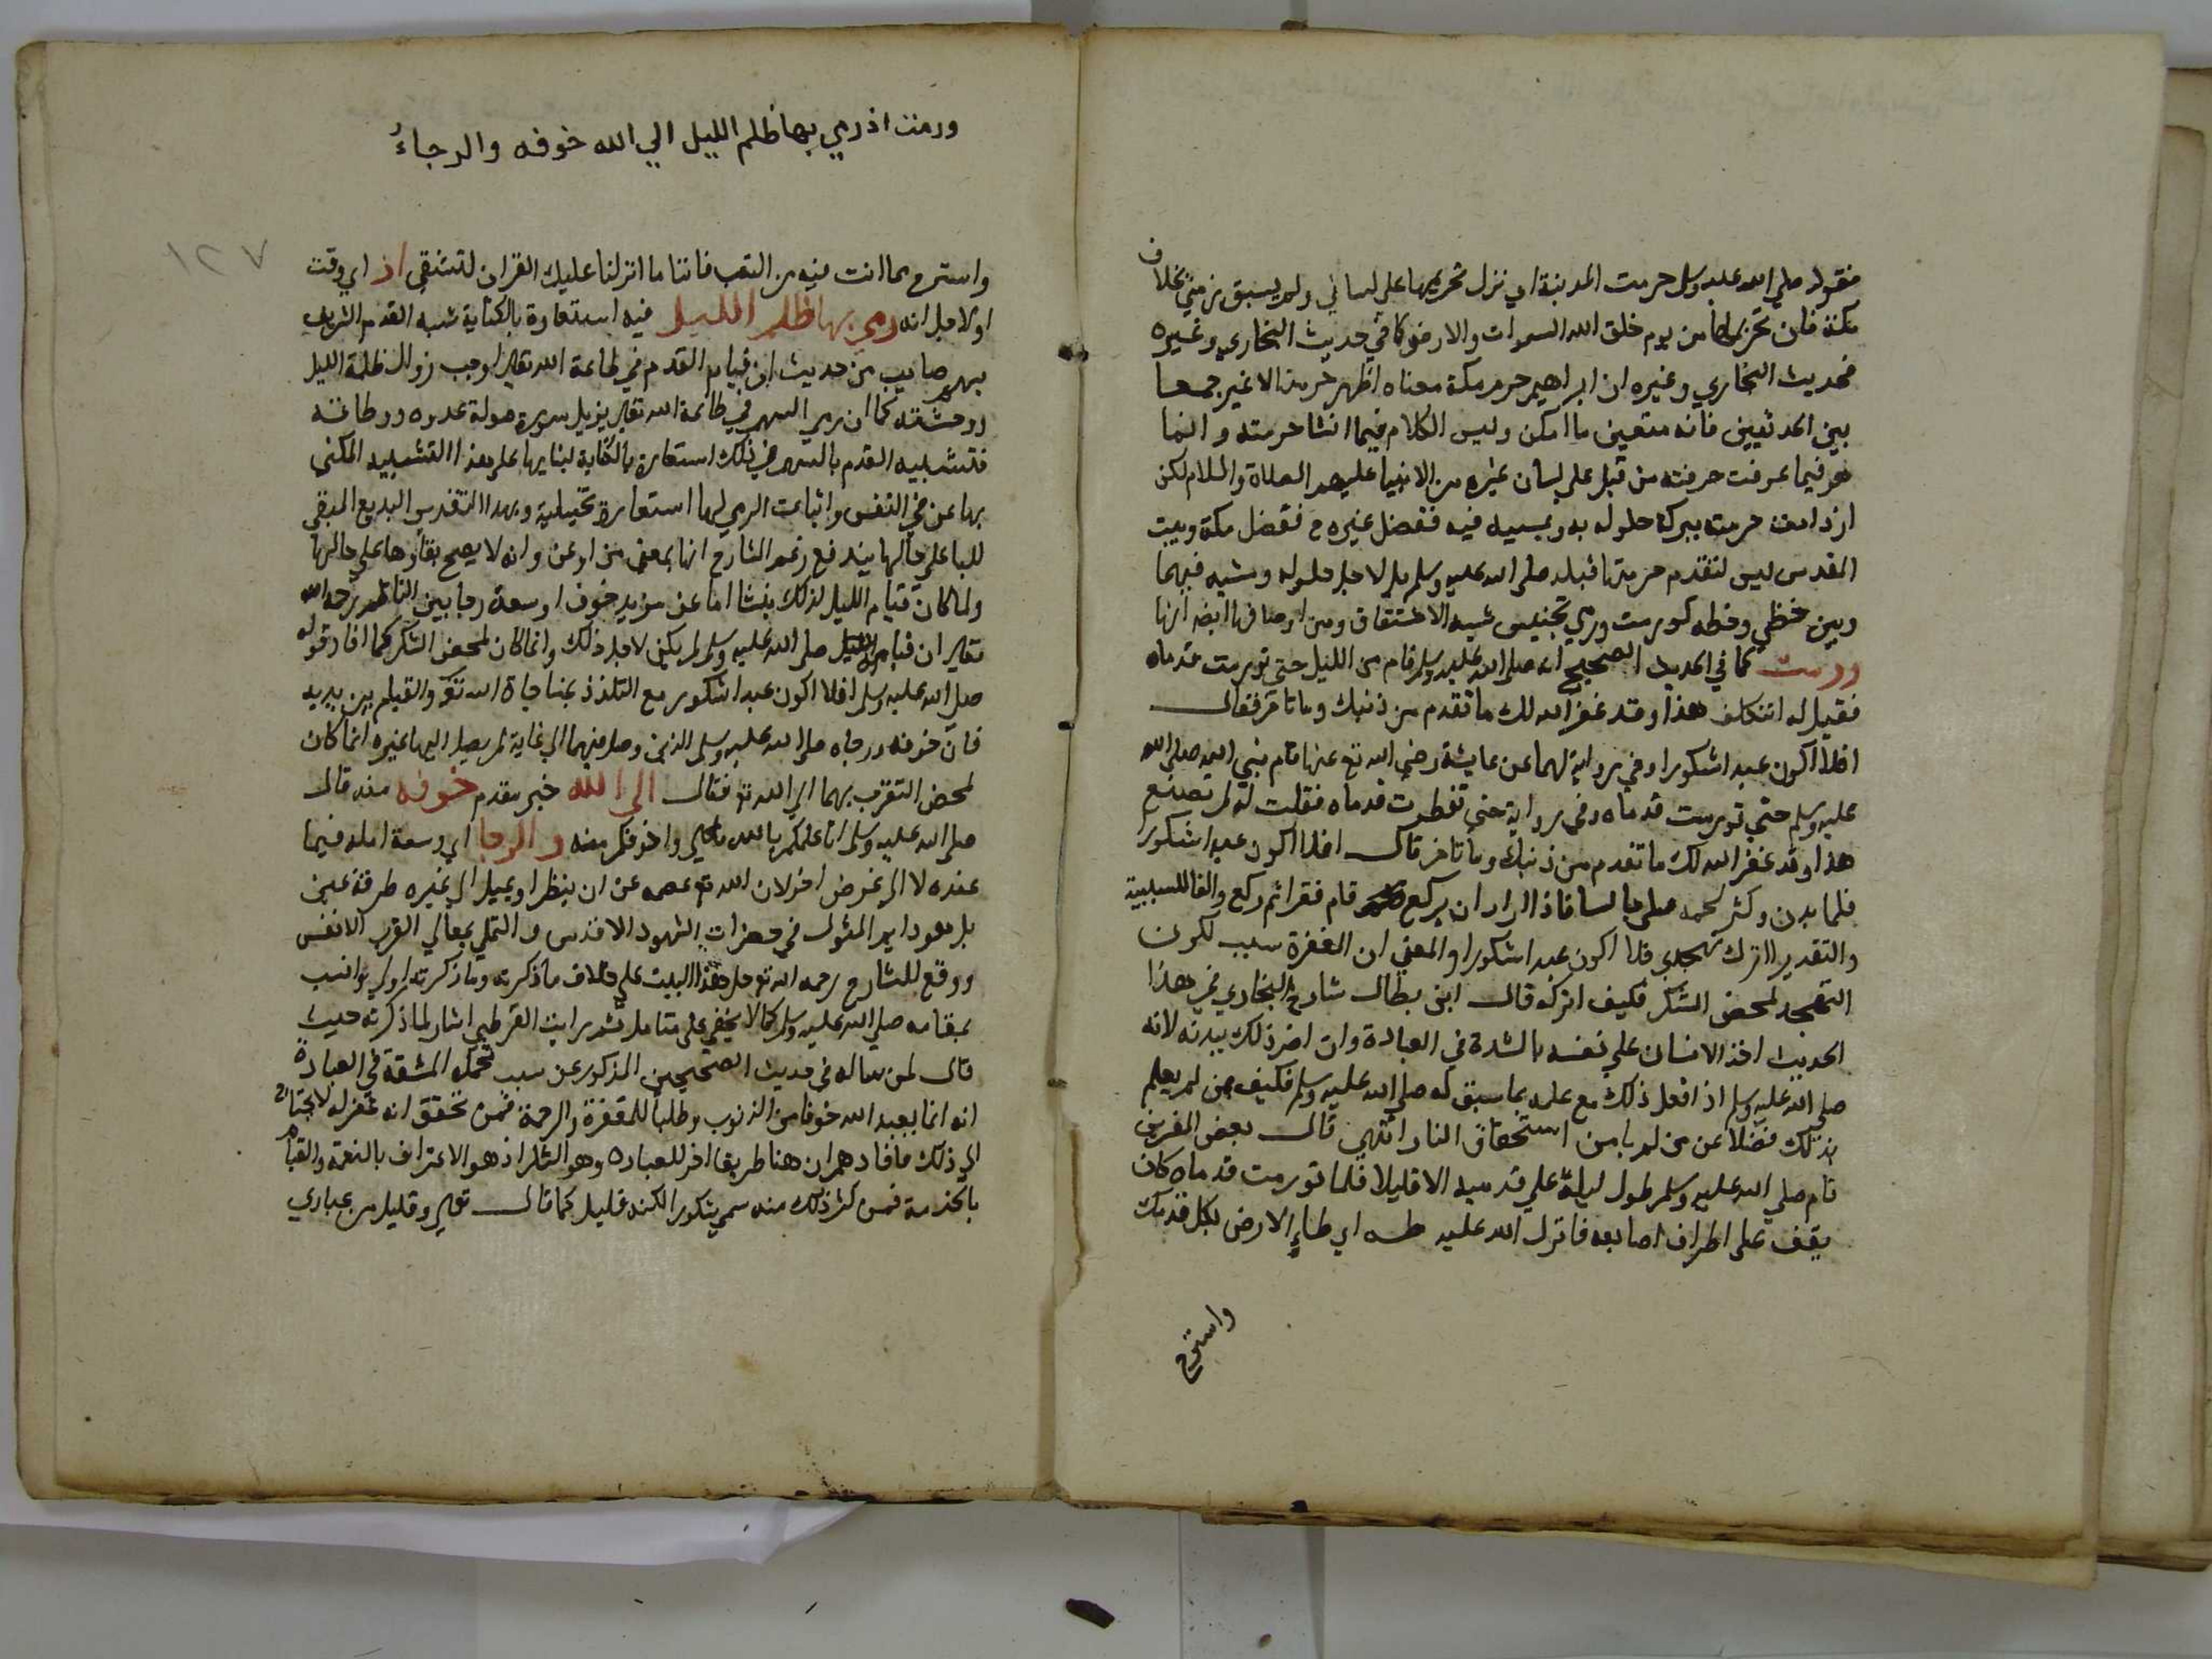 فقوله صلى الله عليه وسلم حرمت المدينة اي نزل تحريمها على لساني ولم يسبق زمني بخلاف
مكة فان تحريمها من يوم خلق الله السموات والارض كما في حديث البخاري وغيره
فحديث البخاري وغيره ان ابراهيم حرم مكة معناه اظهر حرمتها لا غير جمعا
بين الحديثين فانه متعين ما امكن وليس الكلام فيما انشا حرمته وانما
هو فيما عرفت حرمته من قبل على لسان غيره من الانبيا عليهم الصلاة والسلام لكن
ازدادت حرمته ببركة حلوله به وبمسيه فيه ففضل غيره ح ففضل مكة وبيت
المقدس ليس لتقدم حرمتها قبله صلى الله عليه وسلم بل لاجل حلوله ومشيه فيهما
وبين حظي وخطه كورمت ورمي تجنيس شبه الاشتقاق ومن اوصافها ايضا انها
ورمت كما في الحديث الصحيح انه صلى الله عليه وسلم قام من الليل حتى تورمت قدماه
فقيل له اتتكلف هذا وقد غفر الله لك ما تقدم من ذنبك وما تاخر فقال
افلا اكون عبدا شكورا وفي رواية لهما عن عايشة رضي الله تع عنها قام نبي الله صلى الله
عليه وسلم حتى تورمت قدماه وفي رواية حتى تفطرت قدماه فقلت له لم تصنع
هذا وقد غفر الله لك ما تقدم من ذنبك وما تاخر قال افلا اكون عبدا شكورا
فلما بدن وكثر لحمه صلى جالسا فاذا اراد ان يركع قام فقرا ثم ركع والفا للسببية
والتقدير ااترك تهجدي فلا اكون عبدا شكورا والمعنى ان المغفرة سبب لكون
التهجد لمحض الشكر فكيف اتركه قال ابن بطال شارح البخاري في هذا
الحديث اخذ الانسان على نفسه بالشدة في العبادة وان اضر ذلك ببدنه لانه
صلى الله عليه وسلم اذا فعل ذلك مع علمه بما سبق له صلى الله عليه وسلم فكيف بمن لم يعلم
بذلك فضلا عن من لم يامن استحقاق النار انتهى قال بعض المفسرين
قام صلى الله عليه وسلم طول ليلة على قدميه الا قليلا فلما تورمت قدماه كان
يقف على اطراف اصابعه فانزل الله عليه طه اي طاء الارض بكل قدمك
واسترح
ورمت اذ رمي بها ظلم الليل الي الله خوفه والرجاءُ
١٢٧
واسترح مما انت فيه من التعب فاننا ما انزلنا عليك القران لتشقى اذ اي وقت
اولاجل انه رمي بها ظلم الليل فيه استعارة بالكناية شبه القدم الشريف
بسهم صايب من حديث ان قيام القدم في طاعة الله تعالى اوجب زوال ظلمة الليل
ووحشته كما ان رمي السهم في طاعة الله تعالى يزيل سورة صولة عدوه
فتشبيه القدم بالسهم في ذلك استعارة بالكناية لبنايها على هذا التشبيه المكني
بها عن في النفس واثباتت الرمي لها استعارة تخييلية وبهذا التقدير البديع المبقي
للبا على حالها يندفع زعم الشارح انها بمعنى من او عن وانه لا يصح بقاوها على حالها
ولما كان قيام الليل لذلك ينشا اما عن مزيد خوف او سعة رجا بين الناظم رحمه الله
تعالى ان قيام الليل صلى الله عليه وسلم لم يكن لاجل ذلك وانما كان لمحض الشكر كما افاد قوله
صلى الله عليه وسلم افلا اكون عبدا شكورا مع التلذذ بمناجاة الله تع والقيام بين يديه
فان خوفه ورجاه صلى الله عليه وسلم الذين وصل منهما الي غاية لم يصل اليها غيره انما كان
لمحض التقرب بهما الي الله تع فقال الى الله خبر مقدم خوفه منه قال
صلى الله عليه وسلم انا اعلمكم بالله تعالى واخوفكم منه والرجا اي وسعة امله فيما
عنده لا الي غرض اخر لان الله تع عصمه عن ان ينظر او يميل الي غيره طرفة عين
بل هو دايم المثول في حضرات الشهود الاقدس والتملي بمعالي القرب الانفس
ووقع للشارح رحمه الله تع حل هذا البيت على خلاف ما ذكرته وما ذكرته اولى وانسب
بمقامه صلى الله عليه وسلم كما لا يخفى على متامل ثم رايت القرطبي اشار لما ذكرته حيث
قال لمن ساله في حديث الصحيحين المذكور عن سبب تحمله المشقة في العبادة
انه انما يعبد الله خوفا من الذنوب وطلبا للمغفرة والرحمة فمن تحقق انه غفر له لا يحتاج
الي ذلك فافادهم ان هنا طريقا اخر للعباده وهو الشكر اذ هو الاعتراف بالنعمة والقيام
بالخدمة فمن كثر ذلك منه سمي شكورا لكنه قليل كما قال تعالى وقليل من عبادي